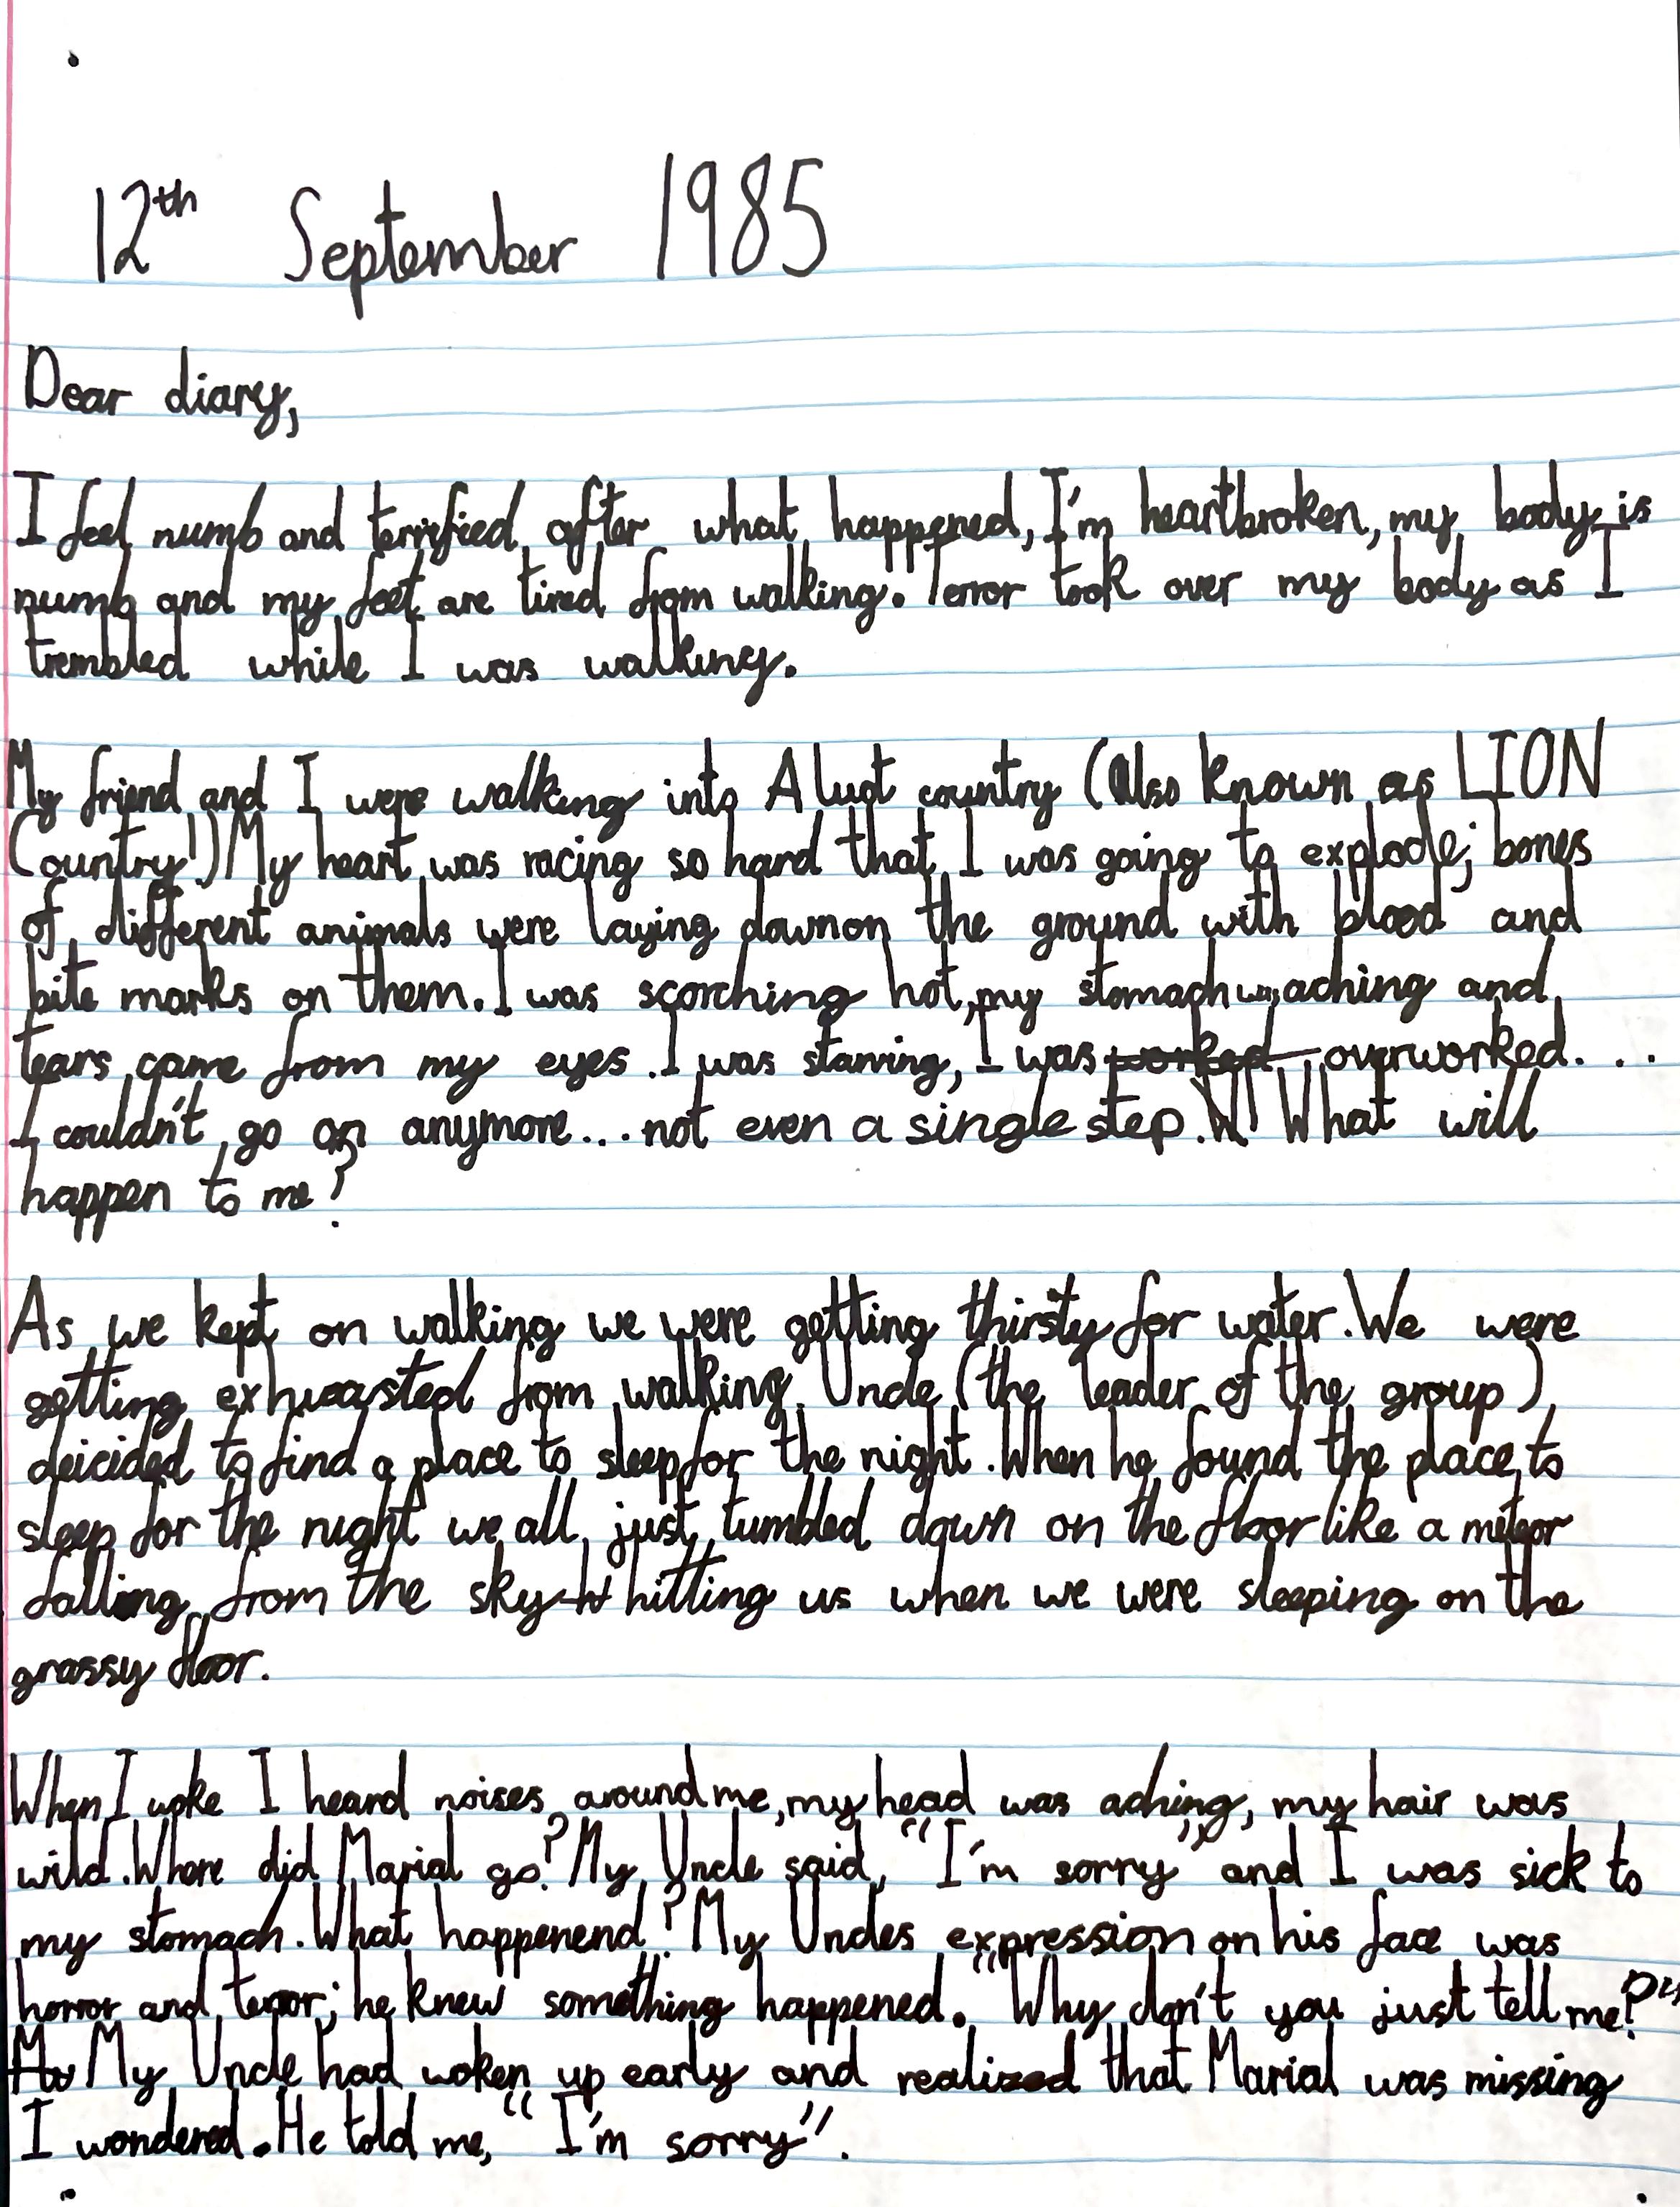 12th September 1985
Dear diary,
I feel numb and terrified after what happened, I'm heartbroken, my body is
numb and my feet are tired from walking. Terror took over my body as I
trembled while I was walking.
My friend and I were walking into A luot country (Also known as LION
Country!) My heart was racing so hard that I was going to explode; bones
of different animals were laying down on the ground with blood and
bite marks on them. I was scorching hot, my stomach was aching and
tears came from my eyes. I was starving, I was worked overworked...
I couldn't go on anymore... not even a single step. W! What will
happen to me?
As we kept on walking we were getting thirsty for water. We were
getting exhuasted from walking. Uncle (the leader of the group)
deicided to find a place to sleep for the night. When he found the place to
sleep for the night we all just tumbled down on the floor like a meteor
falling from the sky hitting us when we were sleeping on the
grassy floor.
When I woke I heard noises around me, my head was aching, my hair was
wild. Where did Marial go? My Uncle said, "I'm sorry" and I was sick to
my stomach. What happenend? My Uncles expression on his face was
horror and terror; he knew something happened. "Why don't you just tell me?"
My Uncle had woken up early and realized that Marial was missing
I wondered. He told me, "I'm sorry".